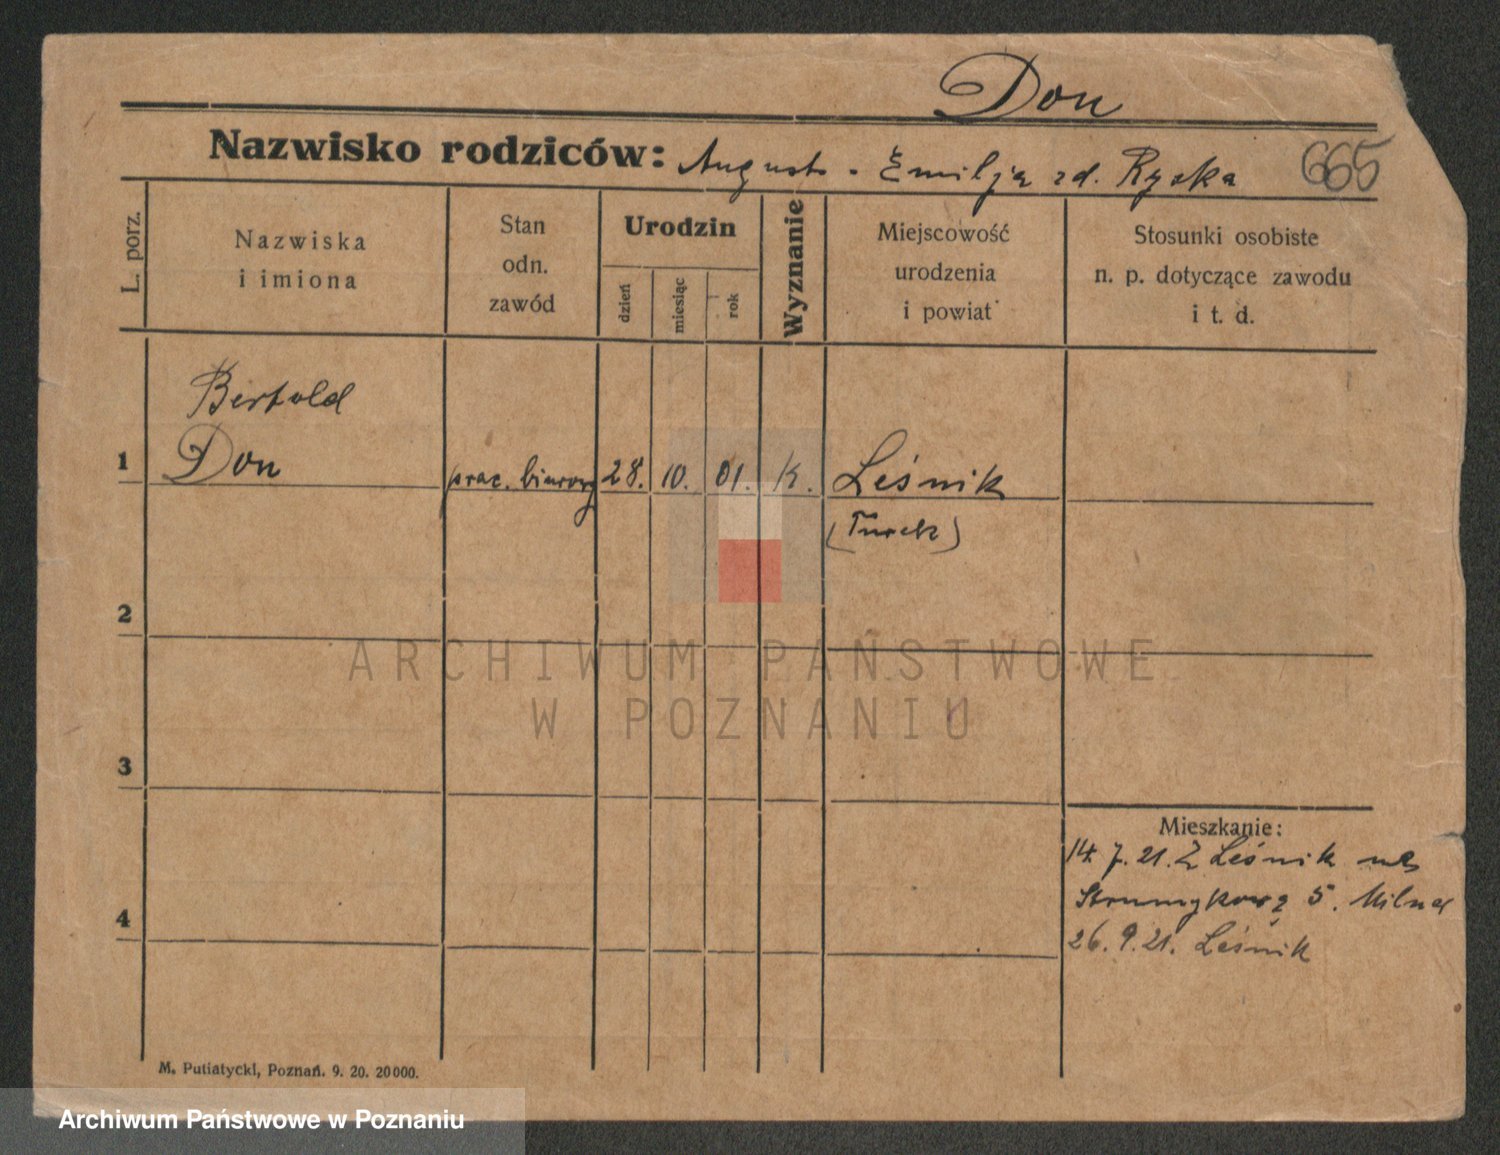 Don
Nazwisko rodziców: August - Emilja zd. Ryska
665
L. porz.
Nazwiska
i imiona
Stan
odn.
zawód
Urodzin
dzień
miesiąc
rok
Wyznanie
Miejscowość
urodzenia
i powiat
Stosunki osobiste
n. p. dotyczące zawodu
i t. d.
Bertold
1 Don prac. biurowy 28. 10. 01. K. Leśnik
(Turek)
2
3
Mieszkanie:
14. 7. 21. Z Leśnik na
Strumykową 5.
4
26. 9. 21. Leśnik
M. Putiatycki, Poznań. 9. 20. 20000.
ARCHIWUM PAŃSTWOWE
W POZNANIU
Archiwum Państwowe w Poznaniu